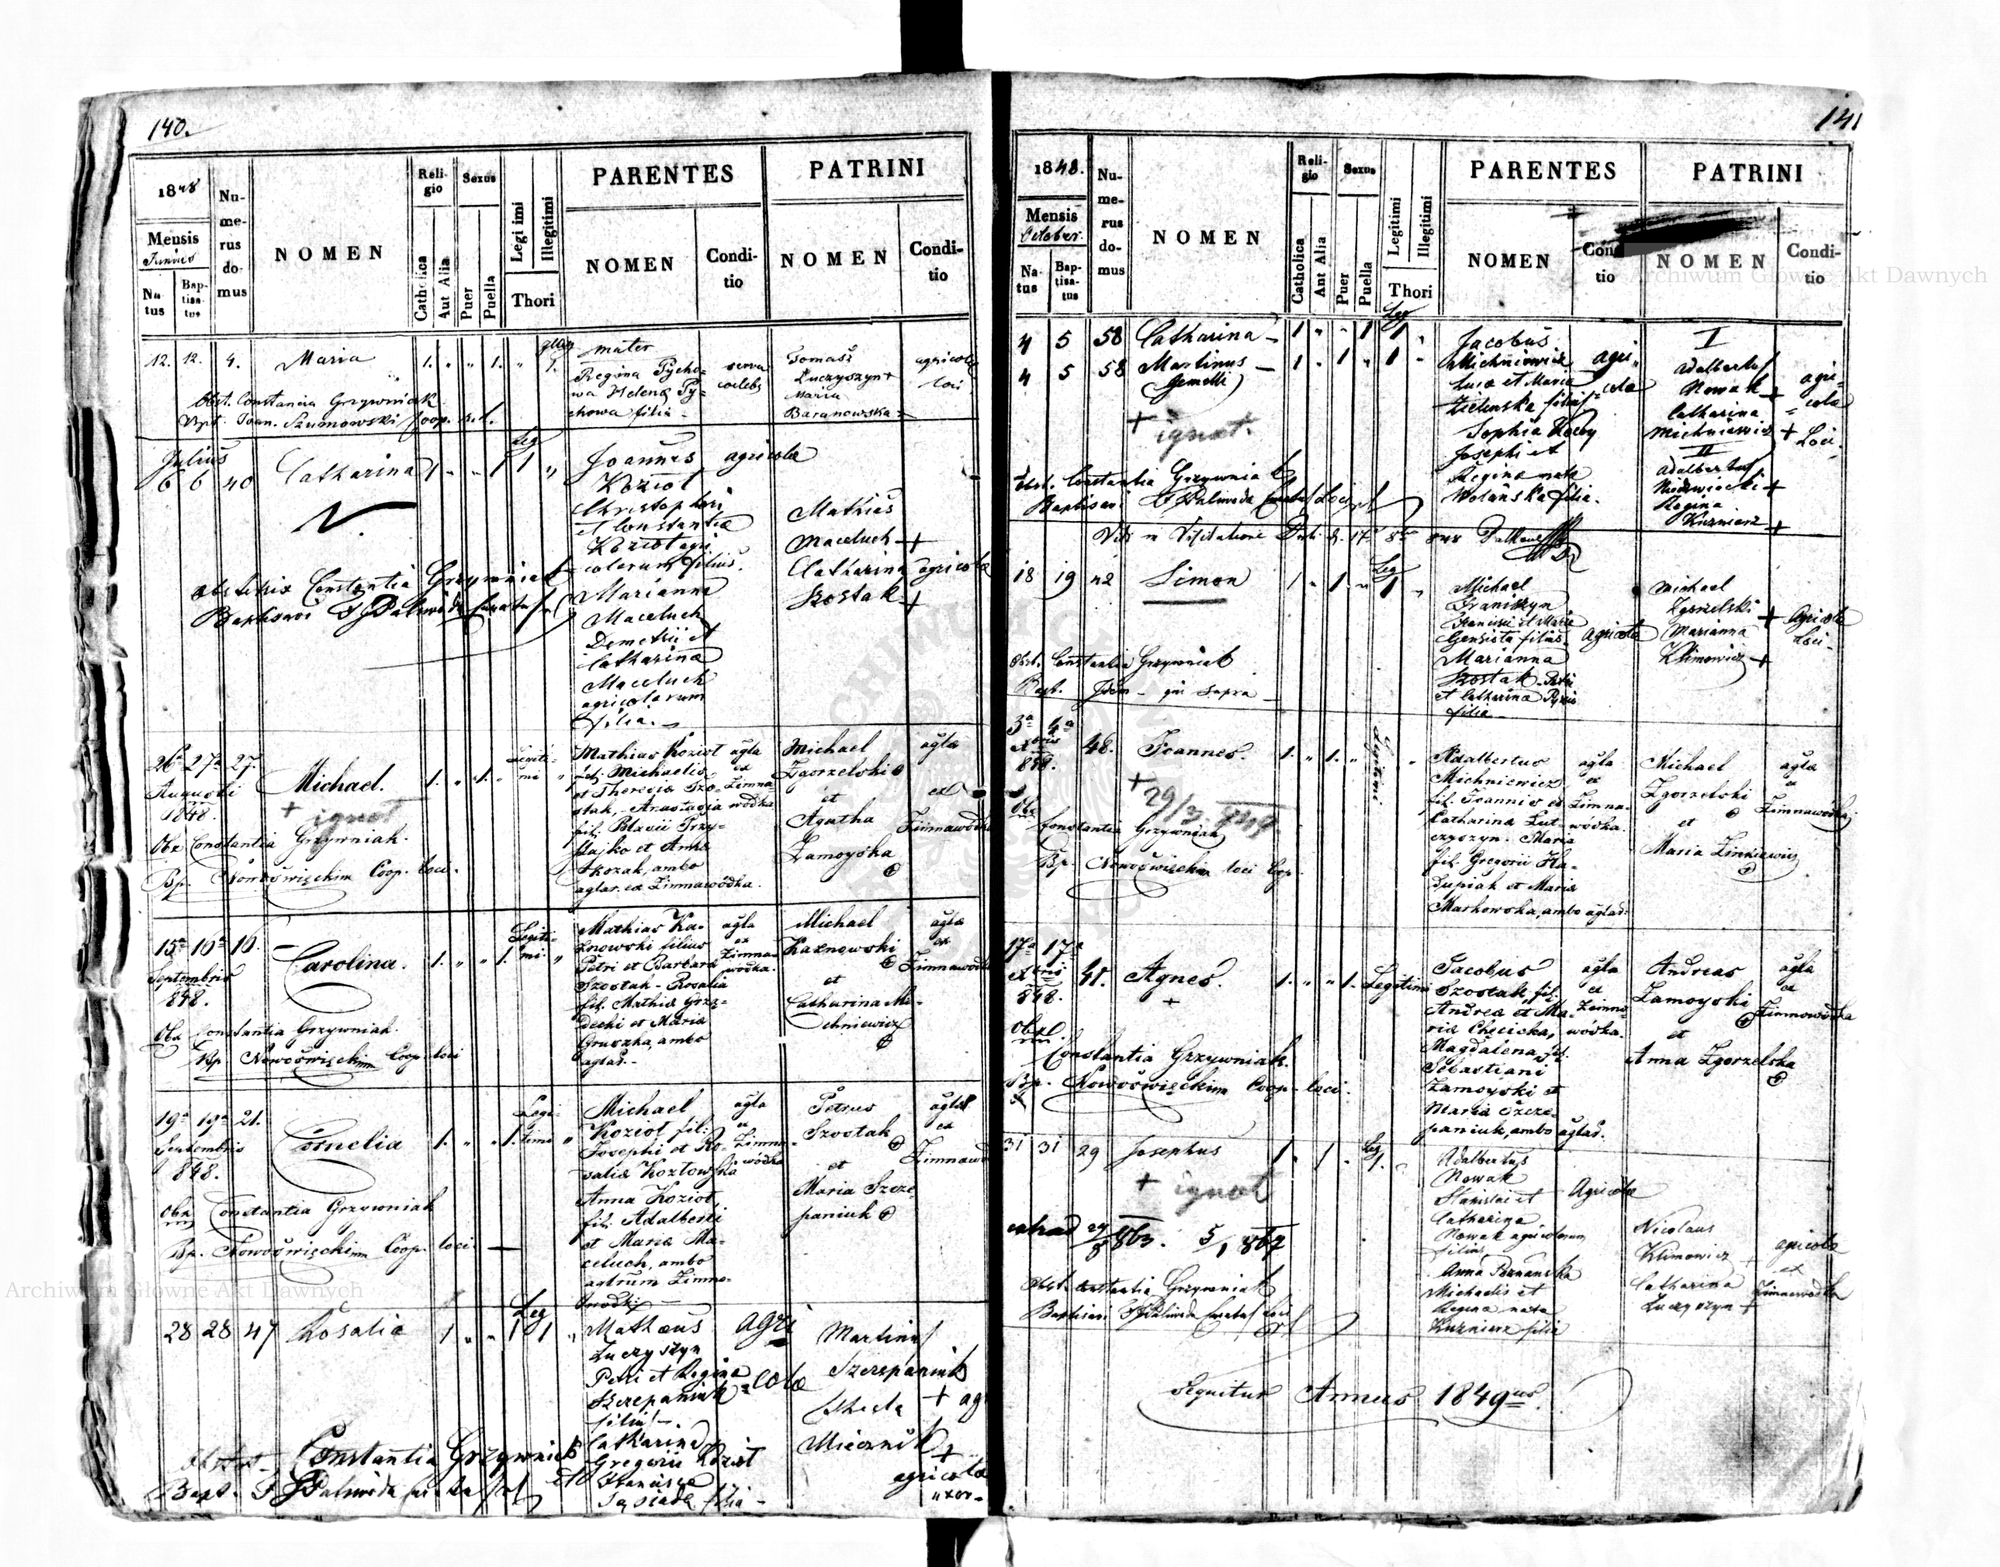 140.
1848
Mensis
Junius
Na-
tus
Bap-
tisa-
tus
Nu-
me-
rus
do-
mus
NOMEN
Reli-
gio
Catholica
Aut Alia
Sexus
Puer
Puella
Legi imi
Illegitimi
Thori
PARENTES
NOMEN
Condi-
tio
PATRINI
NOMEN
Condi-
tio
12. 12. 4. Maria 1. " " 1. " 1.
mater
Regina Pycho-
wa Helena Py-
chowa filia
Tomasz
Łuczyszyn +
Maria
Baranowska
agricola
loci
Obst. Constancia Grzywniak
Bapt. Joan. Szumowski Coop. r. l.
Julius
6 6 40 Catharina 1 " " 1 1 "
Leg
Joannes agricola
Kozioł
Christophori
et Constantia
Kozioł agri
colarum filius.
Marianna
Maceluch
Demetrii et
Catharina
Maceluch
agricolarum
filia.
Mathias
Maceluch +
Catharina agricola
Szostak +
Obstetrix Constantia Grzywniak
26a 27a 27.
Augusti
1848.
Michael. 1. " 1. "
Legiti-
mi "
+ ignot
Mathias Kozioł
fil. Michaelis
et Theresia Szo-
stak, Anastasia
fil. Blasii Przy-
stajko et Anna
Skozak, ambo
aglar. ex Zimnawódka.
agla
ex
Zimna
wódka
Michael
Zgorzelski
et
Agatha
Zamoyska
agla
ex
Zimnawódka
Obx Constantia Grzywniak.
Bp. Nowoświęckim Coop. loci.
15a 16a 16.
Septembris
848.
Carolina. 1. " " 1.
Legiti-
mi. "
Mathias Ka-
znowski filius
Petri et Barbara
Szostak - Rosalia
fil. Mathia Grze-
dechi et Maria
Gruszka, ambo
aglar.
agla
ex
Zimna
wódka.
Michael
Kaznowski
et
Catharina Mi-
chniewicz
agla
ex
Zimnawódka
Obx Constantia Grzywniak.
Bp. Nowoświęckim Coop. loci
19a 19a 21.
Septembris
848.
Cornelia 1. " " 1.
Legi-
timi "
Michael
Kozioł fil.
Josephi et Ro-
salia Kozłowska
Anna Kozioł,
fil. Adalberti
et Maria Ma-
celuch, ambo
agrum Zimno-
wódki
agla
ex
Zimna
wódka
Petrus
Szostak
et
Maria Szcze
paniuk
aglae
ex
Zimnawod
Obx Constantia Grzywniak
Bp. Nowoświęckim Coop. loci.
28 28 47 Rosalia 1 " " 1 1 "
Leg
Mathæus
Łuczyszyn
Petri et Regina
Szczepaniuk
filius.
Catharina
Gregorii Kozioł
et Francisca
Sąsiada filia
agri
=cola
Martinus
Szczepaniuk
Thecla +
Miecznik +
agricola
uxor
Obstet. Constantia Grzywniak
141
1848.
Mensis
October.
Na-
tus
Bap-
tisa-
tus
Nu-
me-
rus
do-
mus
NOMEN
Reli-
gio
Catholica
Aut Alia
Sexus
Puer
Puella
Legitimi
Illegitimi
Thori
PARENTES
NOMEN
Con
tio
PATRINI
NOMEN
Condi-
tio
4 5 58 Catharina 1 " " 1 1 "
4 5 58 Martinus 1 " 1 " 1
(Gemelli)
Leg
+ ignot.
Jacobus
Michniewicz
Luca et Maria
Zielinska filius
Sophia
Josephi et
Regina nata
Wolańska filia.
agri-
cola
I
Adalbertus
Nowak +
Catharina
Michniewicz +
II
Adalbertus
Niedzwiecki +
Regina
Kuzniarz +
agri-
cola
Loci
Obst. Constantia Grzywniak
18 19 42 Simon 1 " 1 " 1 "
Leg
Michael
Franiszyn
Francisci et Maria
Gensiora filius
Marianna
Szostak Petri
et Catharina Pyzio
filia
agricola
Michael
Zgorzelski +
Marianna
Klimowicz +
Agricola
Loci
Obst. Constantia Grzywniak
Bapt. Idem qui supra
3a 4a
Xbris
848.
48. Joannes. 1. " 1. "
Legitimi
+
29/3 849.
Adalbertus
Michniewicz
fil. Joannis et
Catharina Łut-
czyszyn. Maria
fil. Gregorii Ha-
dupiak et Maria
Markowska, ambo aglar.
agla
ex
Zimna-
wódka.
Michael
Zgorzelski
et
Maria Zinkiewicz
agla
ex
Zimnawódka
Obx
Constantia Grzywniak
Bp. Nowoświęckim loci Coop.
17a 17a
Xbris
848.
41. Agnes. 1. " " 1. Legitimi
+
Jacobus
Szostak, fil.
Andrea et Ma-
ria Chęcicka,
Magdalena, fil.
Sebastiani
Zamoyski et
Maria Szcze-
paniuk, ambo aglar.
agla
ex
Zimna
wódka.
Andreas
Zamoyski
et
Anna Zgorzelska
agla
ex
Zimnawódka
Obxt.
Constantia Grzywniak
Bp. Nowoświęckim Coop. loci.
31 31 29 Josephus 1. 1. 1.
Leg
+ ignot
Adalbertus
Nowak
Stanislai et
Catharina
Nowak agricolarum
filius
Anna Poznanska
Michaelis et
Regina nata
Kuzniarz filia
Agricola
Nicolaus
Klimowicz +
Catharina
Łuczyszyn +
agricola
ex
Zimnawódka
Obst. Constantia Grzywniak
Sequitur Annus 1849us.
Archiwum Główne Akt Dawnych
Archiwum Główne Akt Dawnych